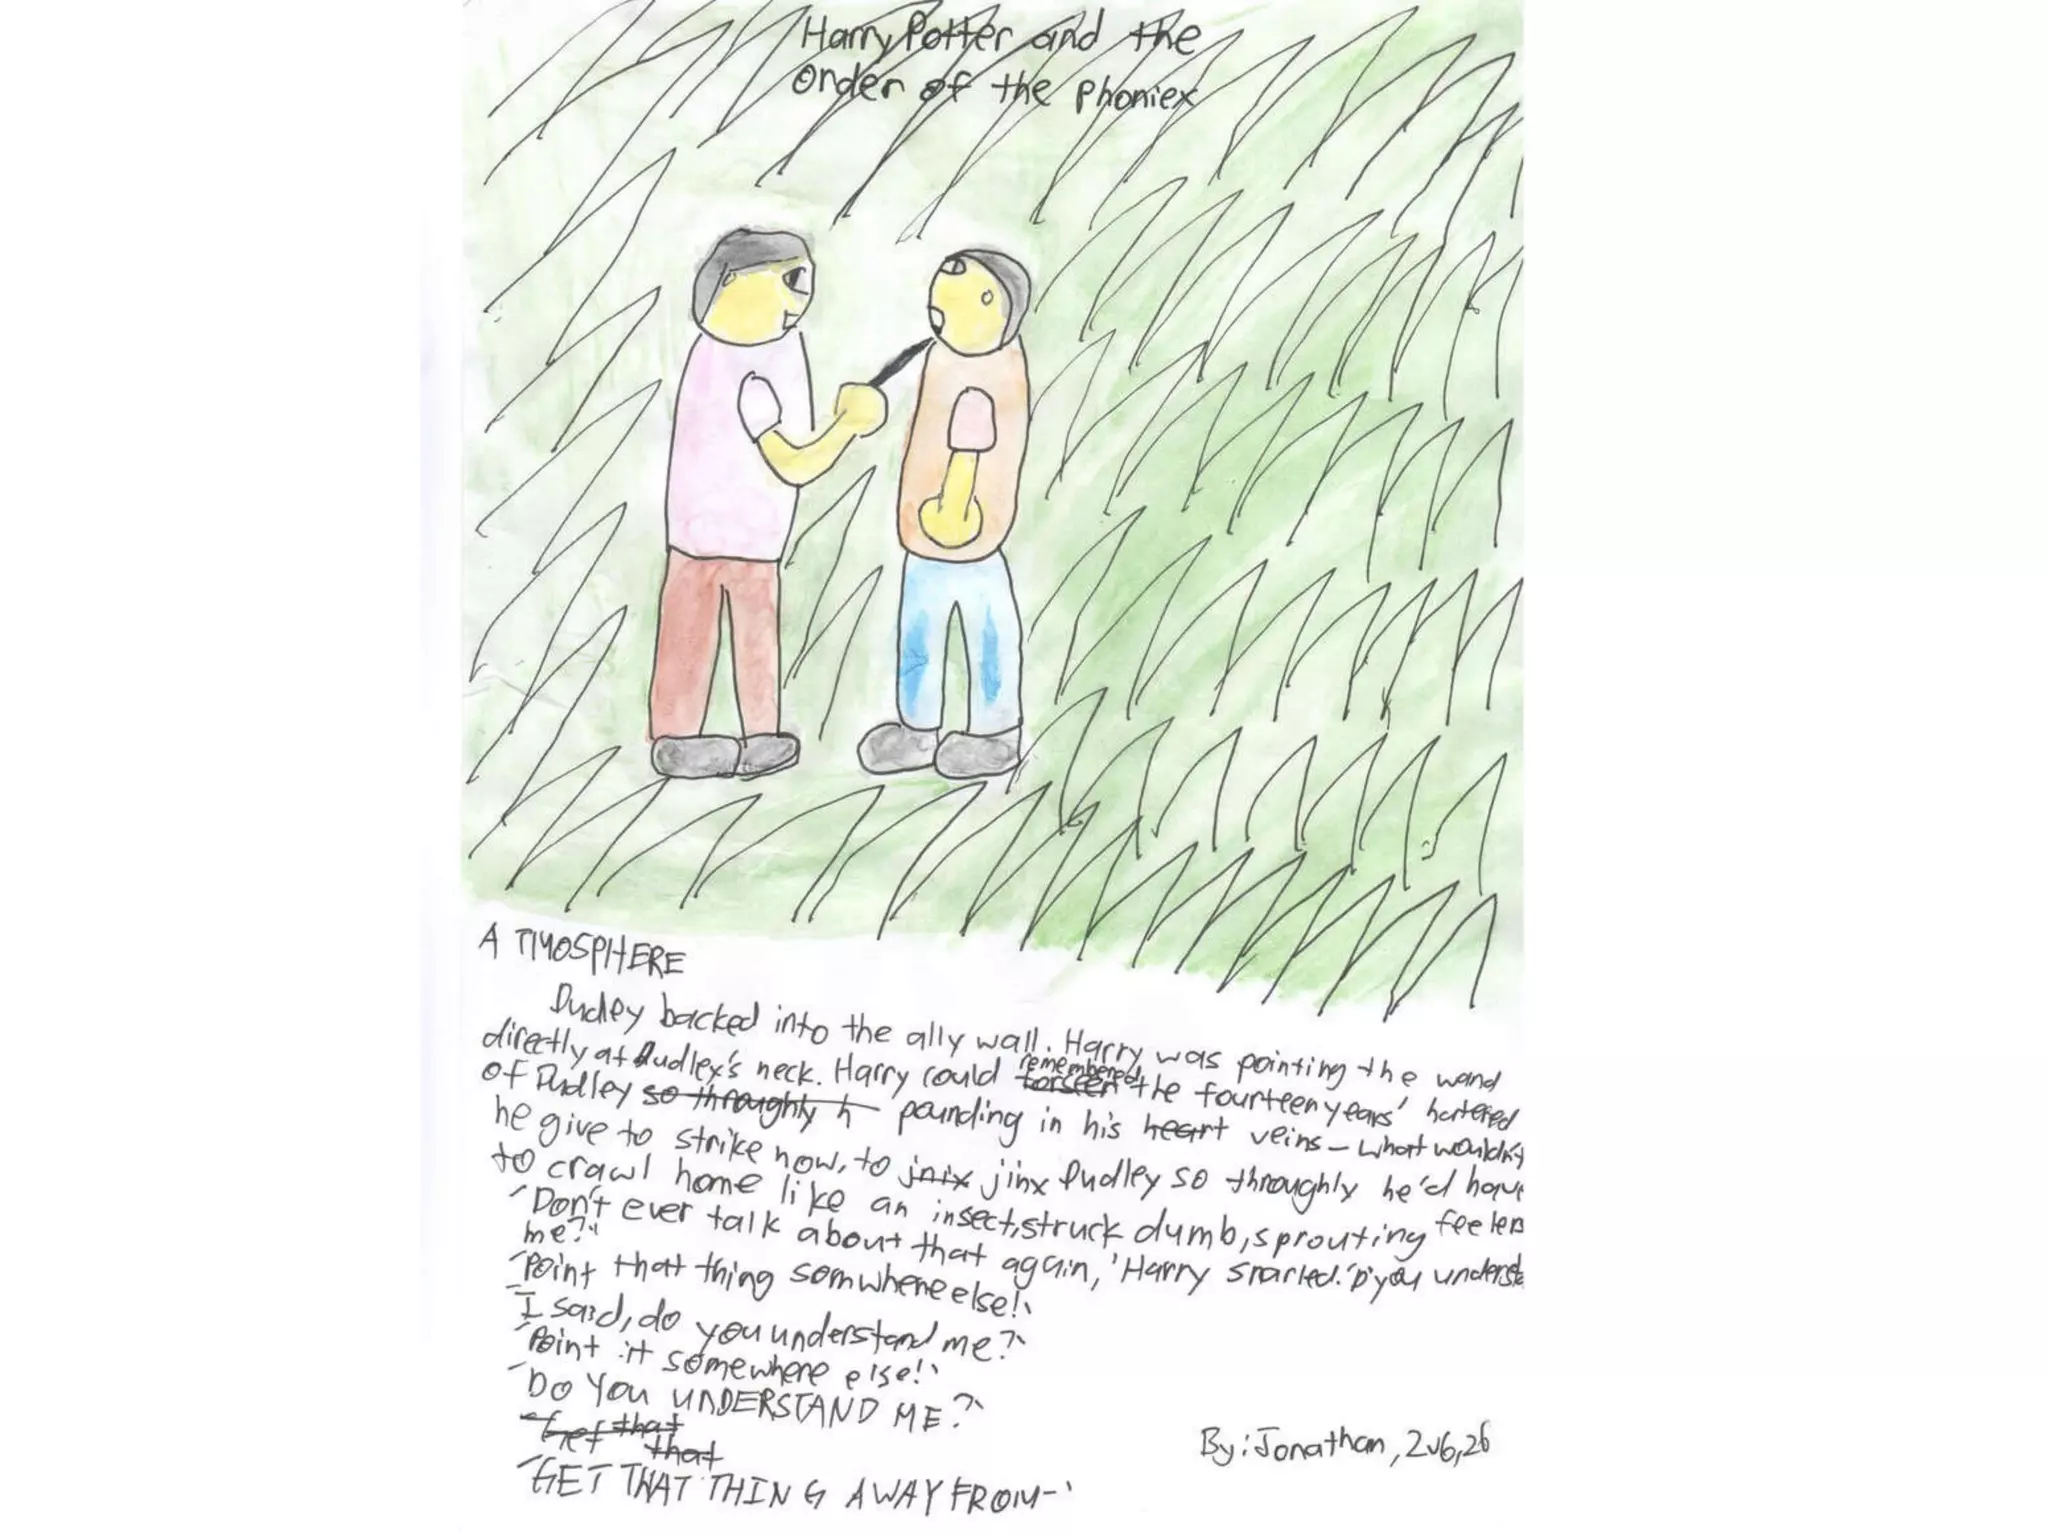 Harry Potter and the
Order of the Phoniex
ATMOSPHERE
Dudley backed into the ally wall. Harry was pointing the wand
directly at Dudley's neck. Harry could forseen remembered the fourteen years' hartered
of Dudley so throughly h pounding in his heart veins - what wouldn't
he give to strike now, to jnix jinx Dudley so throughly he'd have
to crawl home like an insect, struck dumb, sprouting feelers
'Don't ever talk about that again,' Harry snarled. 'D'you understa
me?'
'Point that thing somwhere else!'
'I said, do you understand me?'
'Point it somewhere else!'
'DO YOU UNDERSTAND ME?'
'Get that
that
'GET THAT THING AWAY FROM-'
By: Jonathan, 2J6, 26